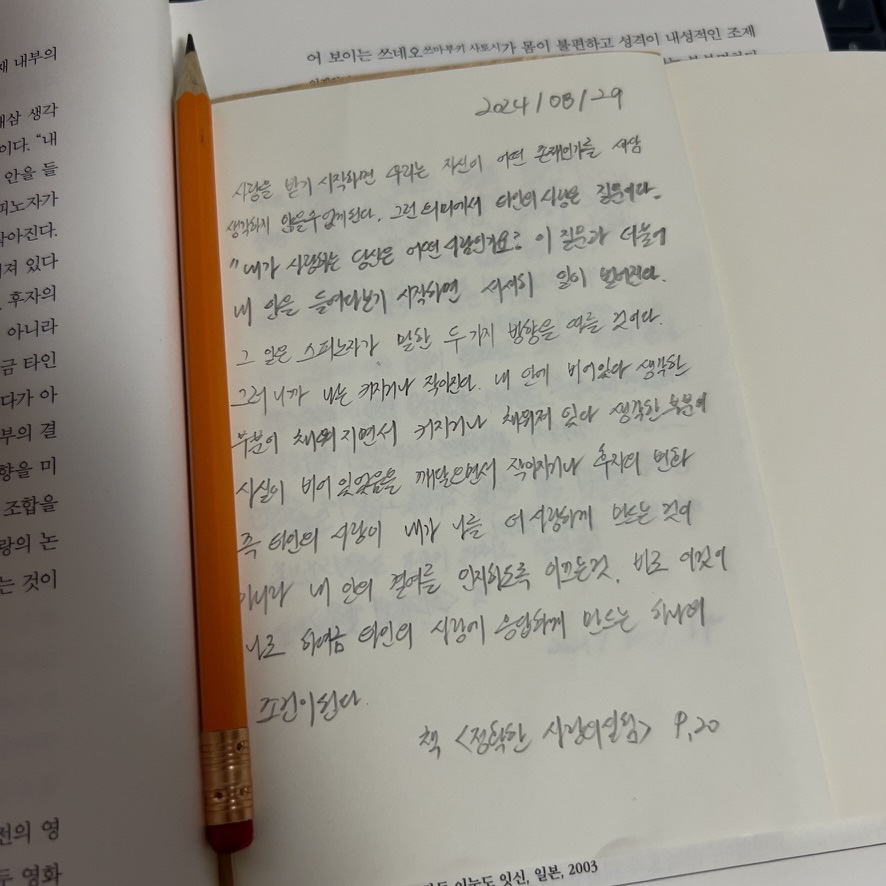 어 보이는 쓰네오쓰마부키 사토시가 몸이 불편하고 성격이 내성적인 조제
재 내부의
새삼 생각
이다. “내
안을 들
피노자가
작아진다.
져 있다
후자의
아니라
금 타인
다가 아
부의 결
향을 미
조합을
랑의 논
는 것이
전의 영
두 영화
2024/08/29
사랑을 받기 시작하면 우리는 자신이 어떤 존재인가를 새삼
생각하지 않을 수 없게 된다. 그런 의미에서 타인의 사랑은 질문이다.
"내가 사랑하는 당신은 어떤 사람인가요? 이 질문과 더불어
내 안을 들여다보기 시작하면 서서히 일이 벌어진다.
그 일은 스피노자가 말한 두가지 방향을 따를 것이다.
그러니까 나는 커지거나 작아진다. 내 안에 비어있다 생각한
부분이 채워지면서 커지거나 채워져 있다 생각한 부분이
사실이 비어 있었음을 깨달으면서 작아지거나 후자의 변화
즉 타인의 사랑이 내가 나를 더 사랑하게 만드는 것이
아니라 내 안의 결여를 인지하도록 이끄는 것. 바로 이것이
나로 하여금 타인의 사랑에 응답하게 만드는 하나의
조건이 된다.
책 <정확한 사랑의 실험> P.20
이누도 잇신, 일본, 2003